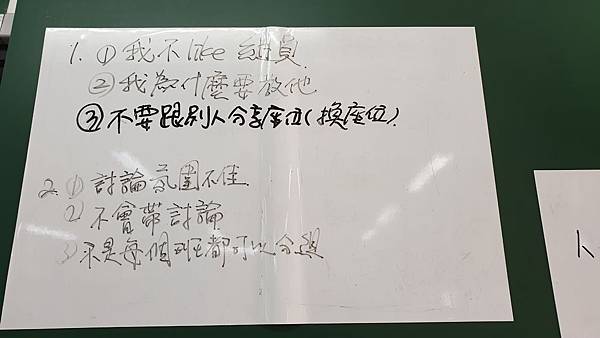 1. ① 我不 like 組員
② 我為什麼要放他
③ 不要跟別人分享座位(換座位)
2. ① 討論氛圍不佳
② 不會帶討論
③ 不是每個班都可以分組
人